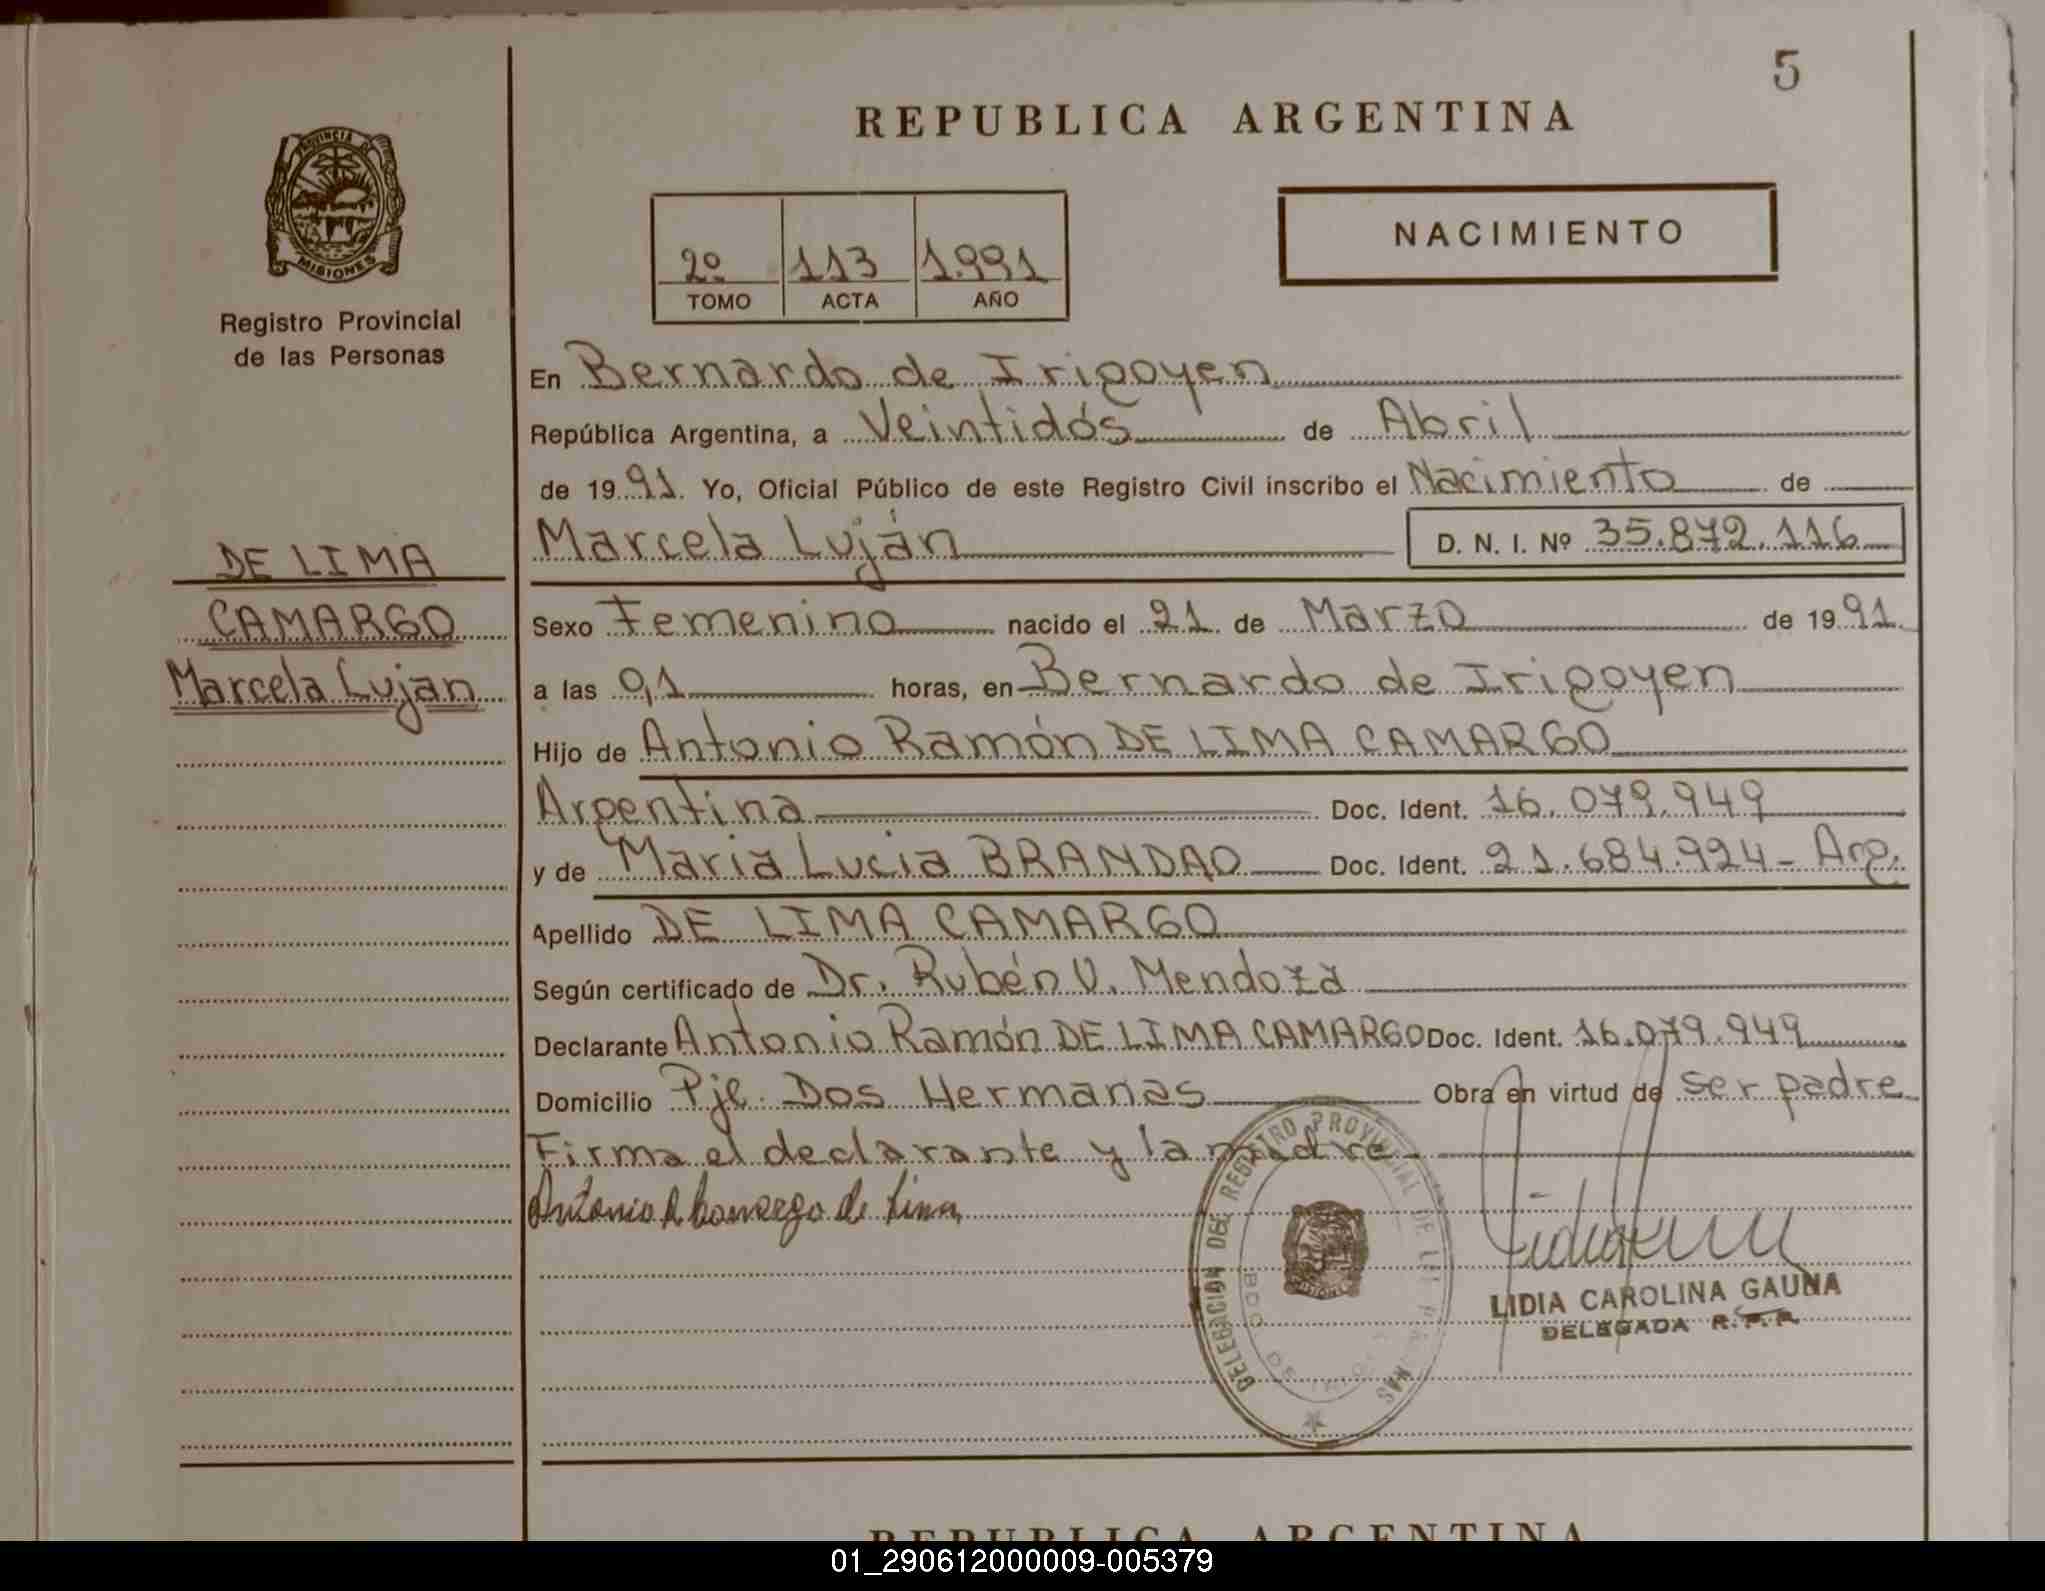 5
REPUBLICA ARGENTINA
PROVINCIA DE
MISIONES
Registro Provincial
de las Personas
2º 113 1.991
TOMO ACTA AÑO
NACIMIENTO
En Bernardo de Irigoyen
República Argentina, a Veintidós de Abril
de 1991. Yo, Oficial Público de este Registro Civil inscribo el Nacimiento de
Marcela Luján D. N. I. Nº 35.872.116
DE LIMA
CAMARGO
Marcela Luján
Sexo Femenino nacido el 21 de Marzo de 1991.
a las 0,1 horas, en Bernardo de Irigoyen
Hijo de Antonio Ramón DE LIMA CAMARGO
Argentina Doc. Ident. 16.079.949
y de Maria Lucia BRANDAO Doc. Ident. 21.684.924 - Arg.
Apellido DE LIMA CAMARGO
Según certificado de Dr. Rubén V. Mendoza
Declarante Antonio Ramón DE LIMA CAMARGO Doc. Ident. 16.079.949
Domicilio Pje. Dos Hermanas Obra en virtud de ser padre
Firma el declarante y la madre
Antonio R Camargo de Lima
DELEGACION DEL REGISTRO PROVINCIAL DE LAS PERSONAS
LIDIA CAROLINA GAUNA
DELEGADA R.P.P.
REPUBLICA ARGENTINA
01_290612000009-005379